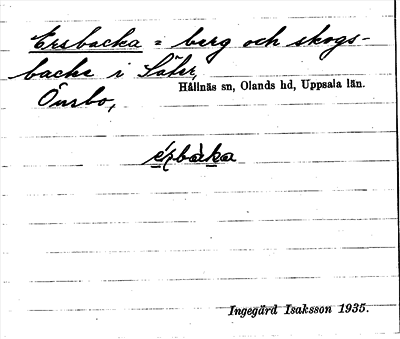 Ersbacka = berg och skogs-
backe i Säter,
Hållnäs sn, Olands hd, Uppsala län.
Önrbo,
Ingegärd Isaksson 1935.